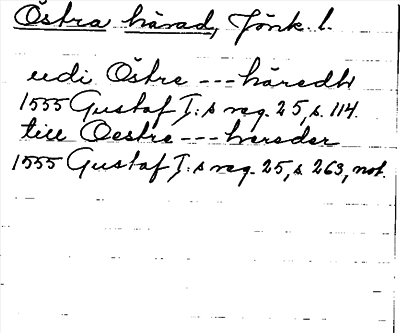 Östra härad, Jönk. l.
udi Östre --- häredh
1555 Gustaf I:s reg. 25, s. 114.
till Oestre --- hersder
1555 Gustaf I:s reg. 25, s. 263, not.